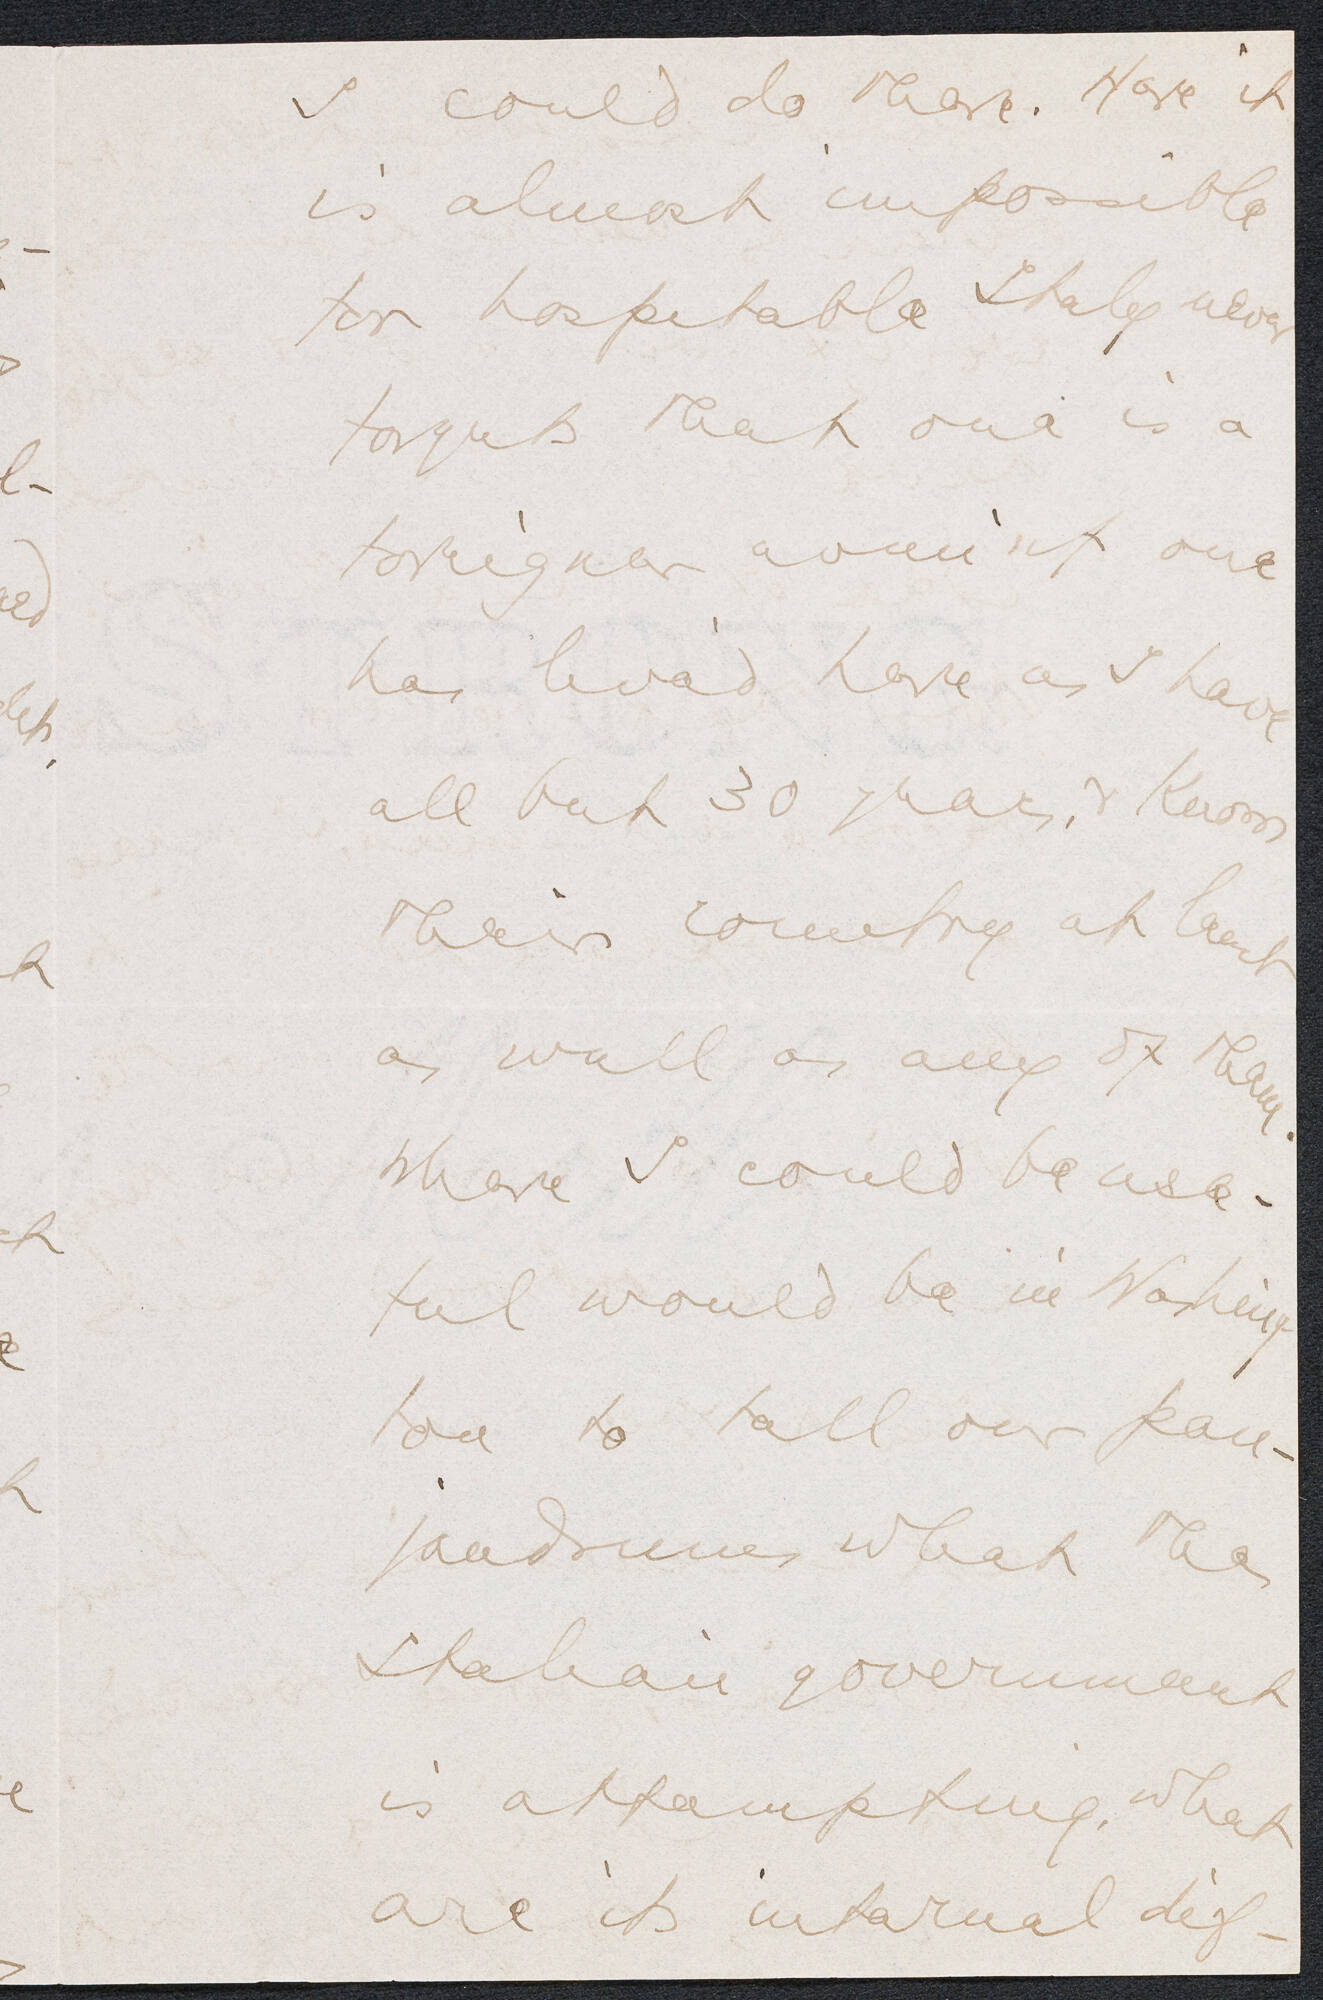 I could do there. Here it
is almost impossible
for hospitable Italy never
forgets that one is a
foreigner even if one
has lived here as I have
all but 30 years, & knows
their country at least
as well as any of them.
Where I could be use-
ful would be in Washing-
ton to tell our pan-
jandrums what the
Italian government
is attempting, what
are its internal dif-